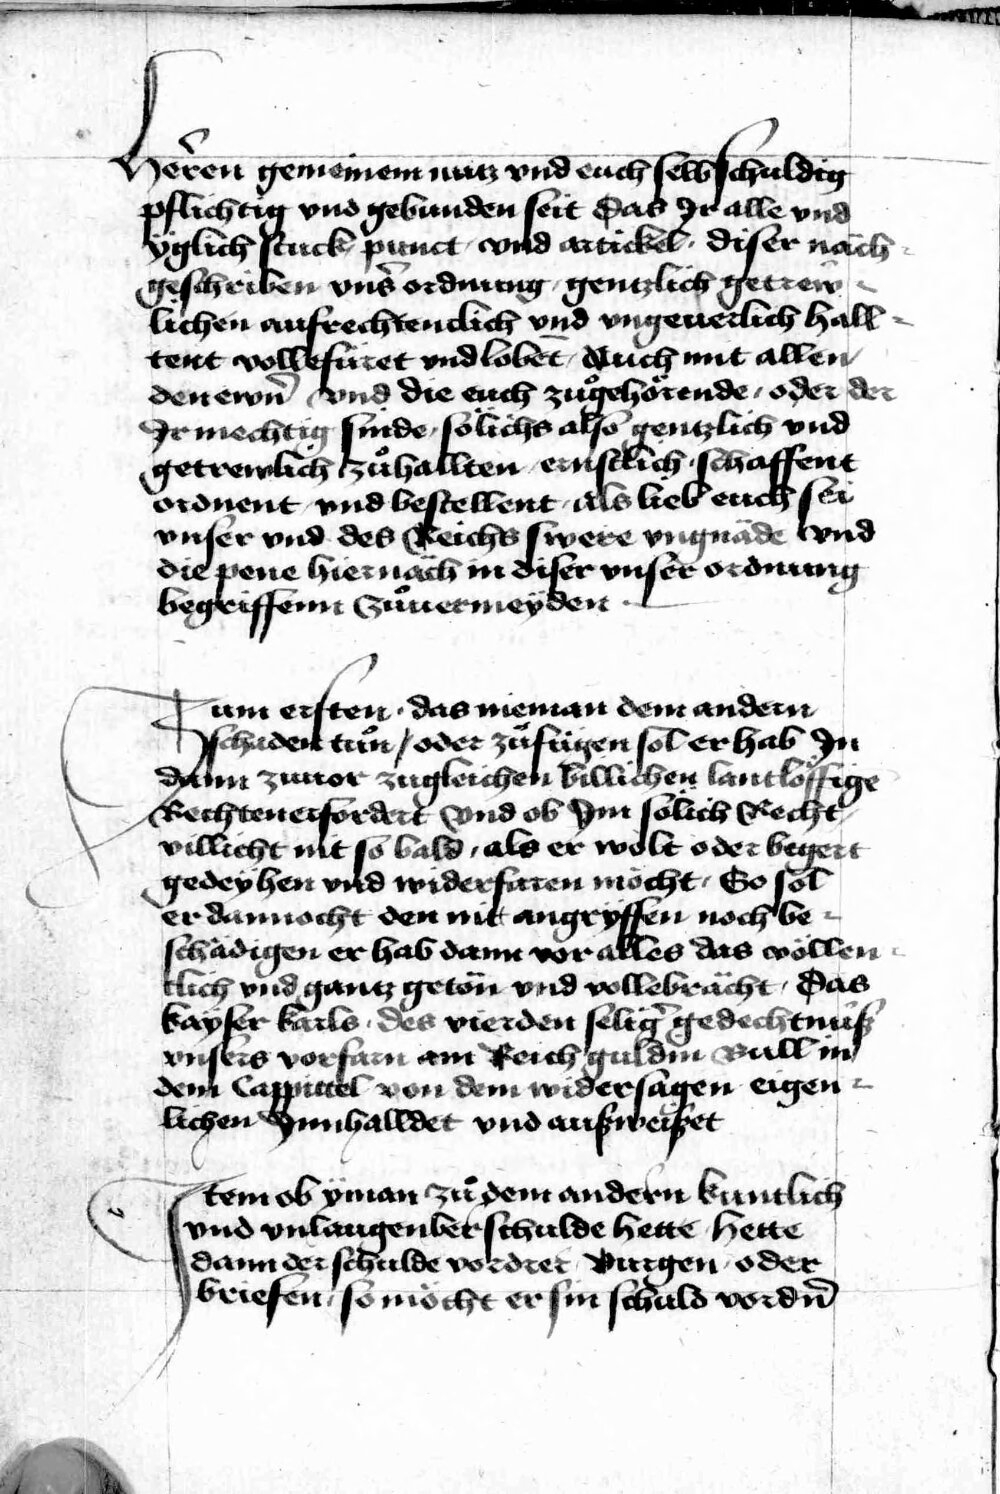 Herren gemeinem nutz vnd euch selb schuldig
pflichtig vnd gebunden seit Das Ir alle vnd
yglich stuck punct vnd artickel diser näch-
geschriben vnser ordnung gentzlich getrew-
lichen aufrechtenclich vnd vngeuerlich hall-
tent vollefüret vnd lobet Auch mit allen
den ewrn vnd die euch zůgehörende oder der
Ir mechtig sinde sölichs also gentzlich vnd
getrewlich zůhallten ernstlich schaffent
ordnent vnd bestellent als lieb euch sei
vnser vnd des Reichs swere vngnäde vnd
die pene hiernäch in diser vnser ordnung
begriffenn Zůuermeyden
Zum ersten das nieman dem andern
schaden tůn / oder zůfügen sol er hab In
dann zuuor zugleichen billichen lantlöffige
Rechten erfordert vnd ob Im sölich Recht
villicht nit so bald als er wolt oder begert
gedeyhen vnd widerfaren möcht So sol
er dannocht den nit angryffen noch be-
schädigen er hab dann vor alles das völlen-
clich vnd gantz getön vnd vollebrächt Das
kayser karls des vierden selig gedechtnüß
vnsers vorfarn am Reich guldin Bull in
dem Cappittel von dem widersagen eigen-
lichen Innhalldet vnd außweißet
Item ob yman zů dem andern kuntlich
vnd vnlaugenber schulde hette hette
dann der schulde vordrer Burgen oder
briefen so möcht er sin schuld vordn